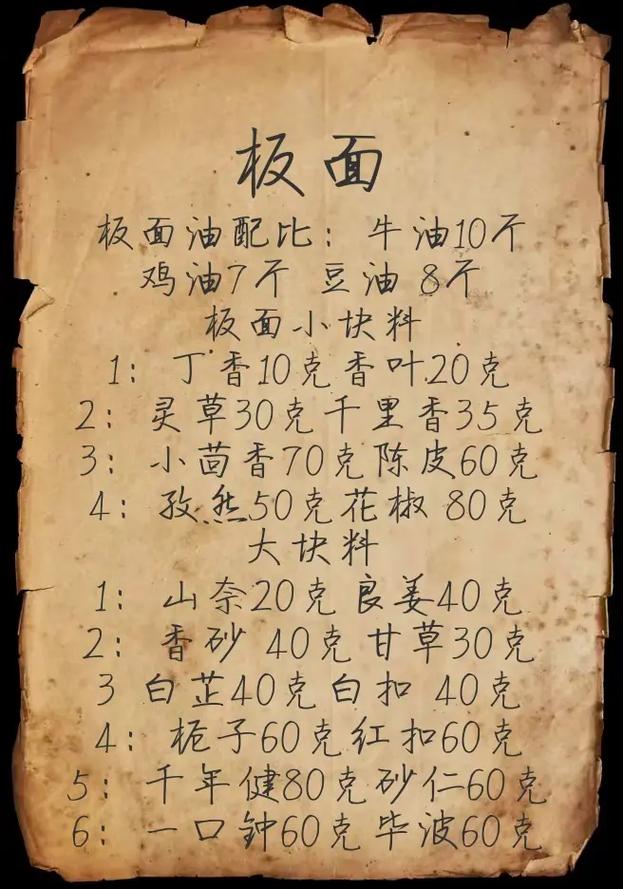 板面
板面油配比：牛油10斤
鸡油7斤 豆油 8斤
板面小块料
1：丁香10克香叶20克
2：灵草30克千里香35克
3：小茴香70克陈皮60克
4：孜然50克花椒 80克
大块料
1：山奈20克 良姜40克
2：香砂 40克甘草30克
3 白芷40克白扣 40克
4：栀子60克红扣60克
5：千年健80克砂仁60克
6：一口钟60克毕波60克